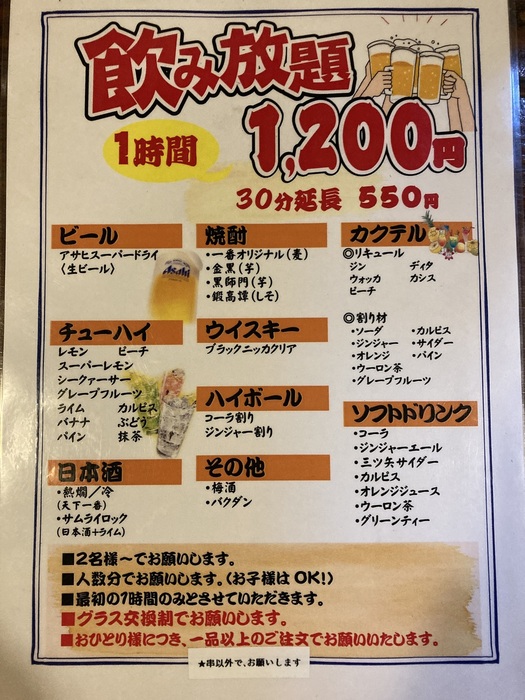 飲み放題
1時間
1,200円
30分延長 550円
ビール
アサヒスーパードライ
〈生ビール〉
Asahi
チューハイ
レモン ピーチ
スーパーレモン
シークァーサー
グレープフルーツ
ライム カルピス
バナナ ぶどう
パイン 抹茶
日本酒
・熱燗／冷
(天下一番)
・サムライロック
(日本酒+ライム)
焼酎
・一番オリジナル(麦)
・金黒(芋)
・黒師門(芋)
・鍛高譚(しそ)
ウイスキー
ブラックニッカクリア
ハイボール
コーラ割り
ジンジャー割り
その他
・梅酒
・バクダン
カクテル
◎リキュール
ジン ディタ
ウォッカ カシス
ピーチ
◎割り材
・ソーダ ・カルピス
・ジンジャー ・サイダー
・オレンジ ・パイン
・ウーロン茶
・グレープフルーツ
ソフトドリンク
・コーラ
・ジンジャーエール
・三ツ矢サイダー
・カルピス
・オレンジジュース
・ウーロン茶
・グリーンティー
■2名様～でお願いします。
■人数分でお願いします。(お子様はOK!)
■最初の1時間のみとさせていただきます。
■グラス交換制でお願いします。
■おひとり様につき、一品以上のご注文でお願いいたします。
★串以外で、お願いします